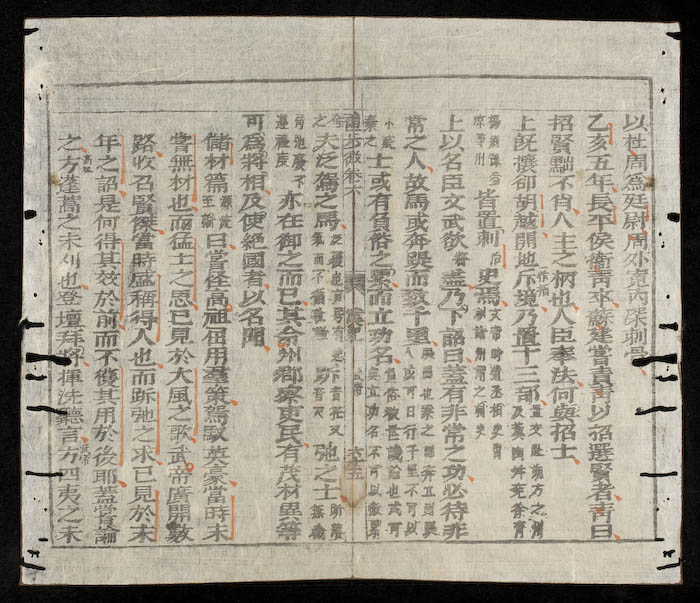 以杜周爲廷尉周外寬內深刺骨
乙亥五年長平侯衛靑卒蘇建嘗責靑以招選賢者靑曰
招賢黜不肖人主之柄也人臣奉法何與招士
上旣攘卻胡越開地斥境乃置十三部 置交趾朔方之州 及冀幽幷兗徐靑
揚荊豫益 凉等州 皆置刺史焉
上以名臣文武欲盡乃下詔曰蓋有非常之功必待非
常之人故馬或奔踶而致千里
士或有負俗之累而立功名
卷六
夫泛駕之馬 跅弛之士
亦在御之而已其令州郡察吏民有茂材異等
可爲將相及使絕國者以名聞
儲材篇 曰嘗怪高祖 用羣策駕馭英豪當時未
嘗無材也而猛士之思已見於大風之歌武帝廣開數
路收召賢傑當時盛稱得人也而跅弛之求已見於末
年之詔是何得其效於前而不獲其用於後耶蓋嘗論
之方蓬蒿之未刈也登壇拜將揮洗聽言方四夷之未